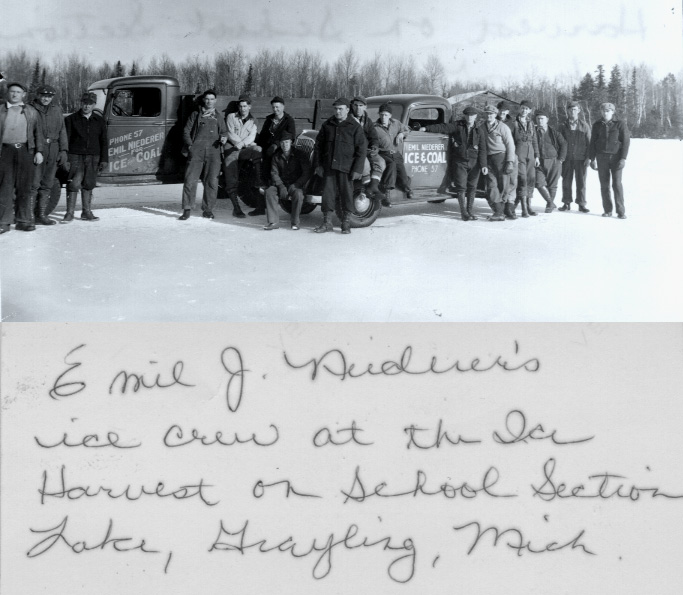 Harvest on School Section
PHONE 57
EMIL NIEDERER
ICE & COAL
EMIL NIEDERER
ICE & COAL
PHONE 57
Emil J. Niederer's
ice crew at the Ice
Harvest on School Section
Lake, Grayling, Mich.